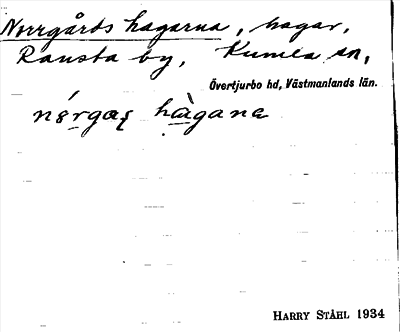 Norrgårds hagarna, hagar,
Ransta by, Kumla sn,
Övertjurbo hd, Västmanlands län.
hàgane
HARRY STÅHL 1934